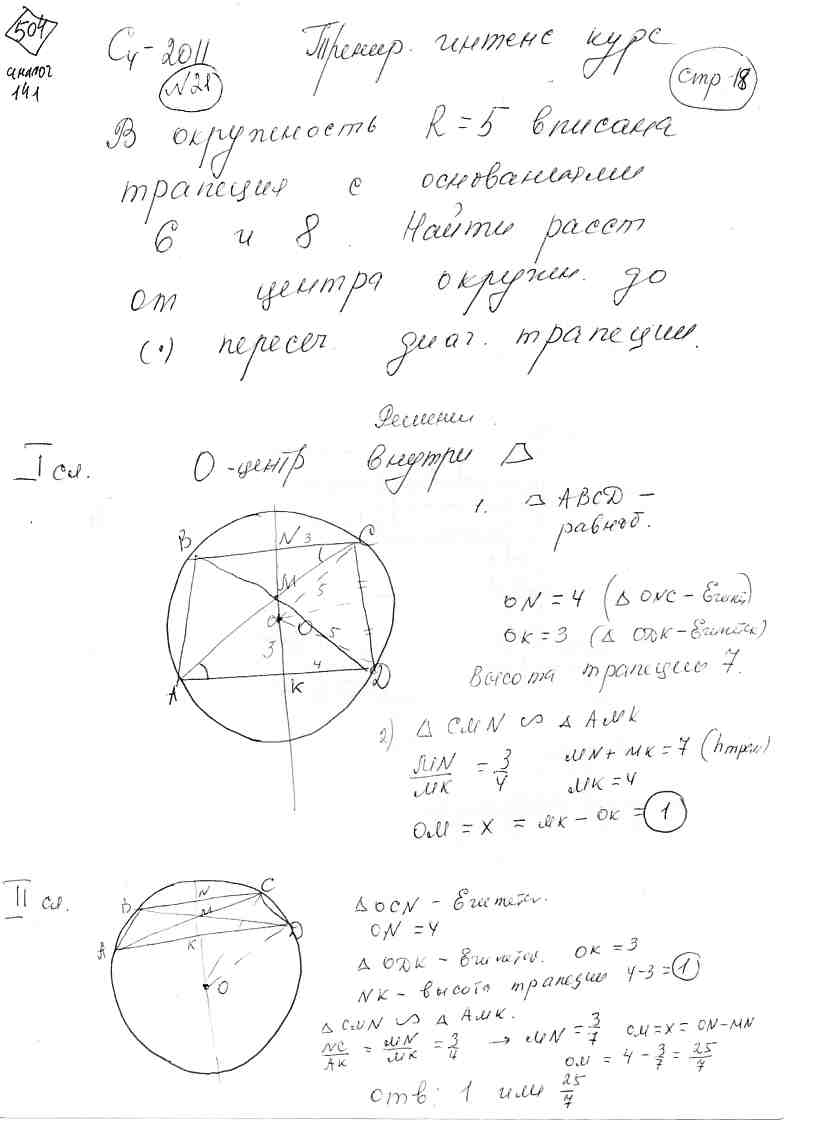 504
аналог
141
С4-2011 Тренир. интенс курс
N21
стр 18
В окружность R = 5 вписана
трапеция с основаниями
6 и 8. Найти расст
от центра окружн. до
(·) пересеч. диаг. трапеции.
Решение.
I сл. O - центр внутри
1. ABCD -
равноб.
B N 3 C
M
5
O 5
3
4
A K D
ON = 4 (△ ONC - Египет)
OK = 3 (△ ODK - Египетск)
Высота трапеции 7.
2) △ CMN ∽ △ AMK
MN/MK = 3/4 MN + MK = 7 (hтрап)
MK = 4
OM = x = MK - OK = 1
II сл.
N C
B M
A K D
O
△ OCN - Египетск.
ON = 4
△ ODK - Египетск. OK = 3
NK - высота трапеции 4-3 = 1
△ CMN ∽ △ AMK.
NC/AK = MN/MK = 3/4 → MN = 3/7 OM = x = ON - MN
OM = 4 - 3/7 = 25/7
Отв: 1 или 25/7